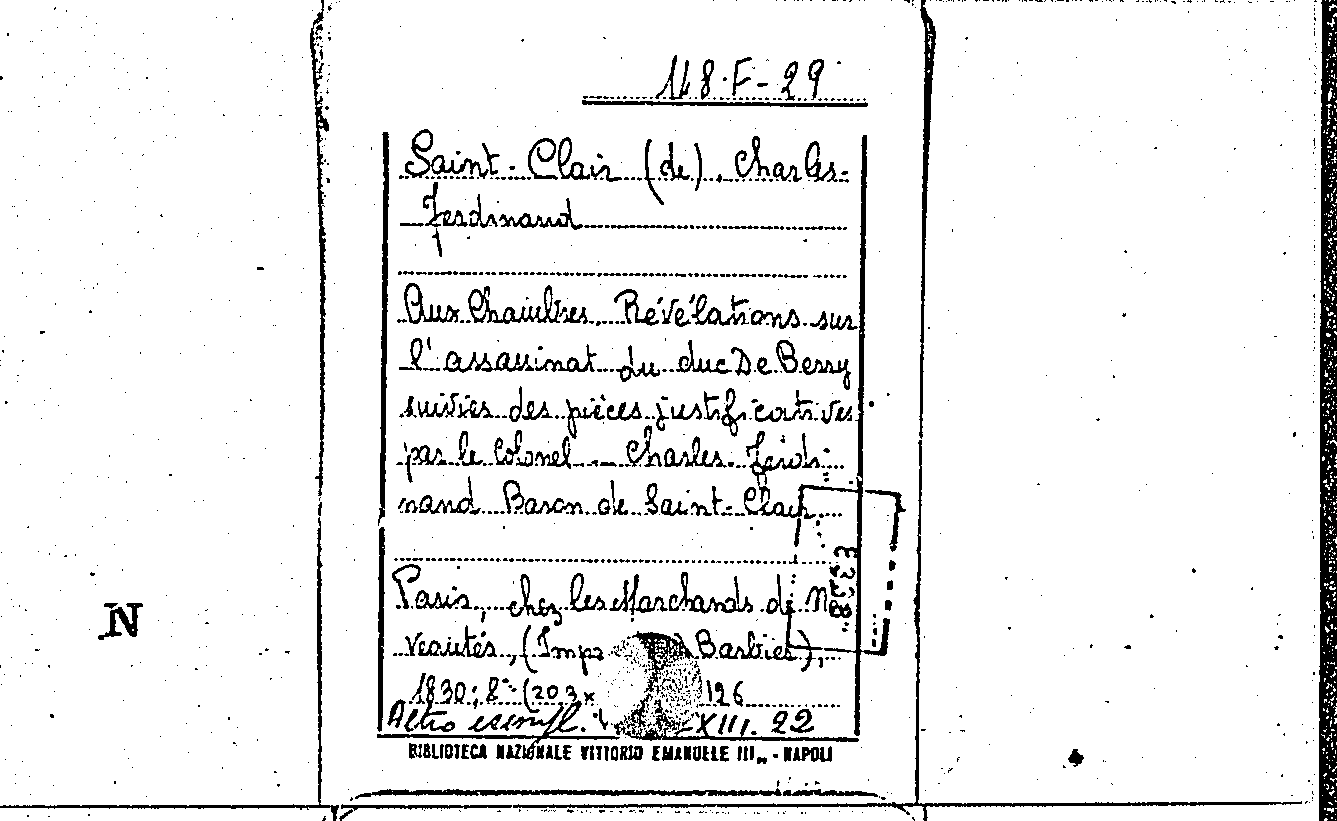 148.F-29
Saint-Clair (de), Charles-
Ferdinand
Aux Chambres. Révélations sur
l'assassinat du duc De Berry
suivies des pièces justificatives
par le Colonel Charles Ferdi-
nand Baron de Saint-Clair.
Paris, chez les Marchands de N
veautés, (Imp Barbier),
1830; 8° (20,3x 126
Altro esempl. XIII. 22
BIBLIOTECA NAZIONALE VITTORIO EMANUELE III„ - NAPOLI
N